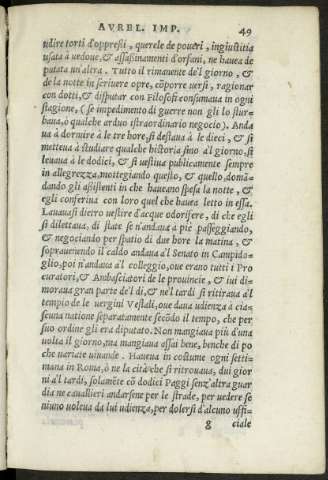 AVREL. IMP. 49
udire torti d'oppressi, querele de poueri, ingiustitia
usata à uedoue, & assassinamenti d'orfani, ne haueа de
putata un'altra. Tutto il rimanente de'l giorno, &
de la notte in scriuere opre, cōporre uersi, ragionar
con dotti, & disputar con Filosofi consumaua in ogni
stagione, (se impedimento di guerre non gli lo stur-
baua, ò qualche arduo istraordinario negocio). Anda
ua à dormire à le tre hore, si destaua à le dieci, & si
metteua à studiare qualche historia sino a'l giorno, si
leuaua à le dodici, & si uestiua publicamente sempre
in allegrezza, motteggiando questo, & quello, doman-
dando gli assistenti in che haueano spesa la notte, &
egli conferiua con loro quel che haueа letto in essa.
Lauauasi dietro uestire d'acque odorifere, di che egli
si dilettaua, di state se n'andaua à piè passeggiando,
& negociando per spatio di due hore la matina, &
soprauenendo il caldo andaua a'l Senato in Campido-
glio, poi n'andaua a'l colleggio, oue erano tutti i Pro
curatori, & Ambasciatori de le prouincie, & iui di-
moraua gran parte de'l di, & ne'l tardi si ritiraua a'l
tempio de le uergini Vestali, oue daua udienza à cia-
scuna natione separatamente secōdo il tempo, che per
suo ordine gli era diputato. Non mangiaua più d'una
uolta il giorno, ma mangiaua assai bene, benche di po
che uariate uiuande. Haueua in costume ogni setti-
mana in Roma, ò ne la città che si ritrouaua, dui gior
ni a'l tardi, solamēte cō dodici Paggi senz'altra guar
dia ne cauallieri andarsene per le strade, per uedere se
niuno uoleua da lui udienza, per dolersi d'alcuno uffi-
g ciale